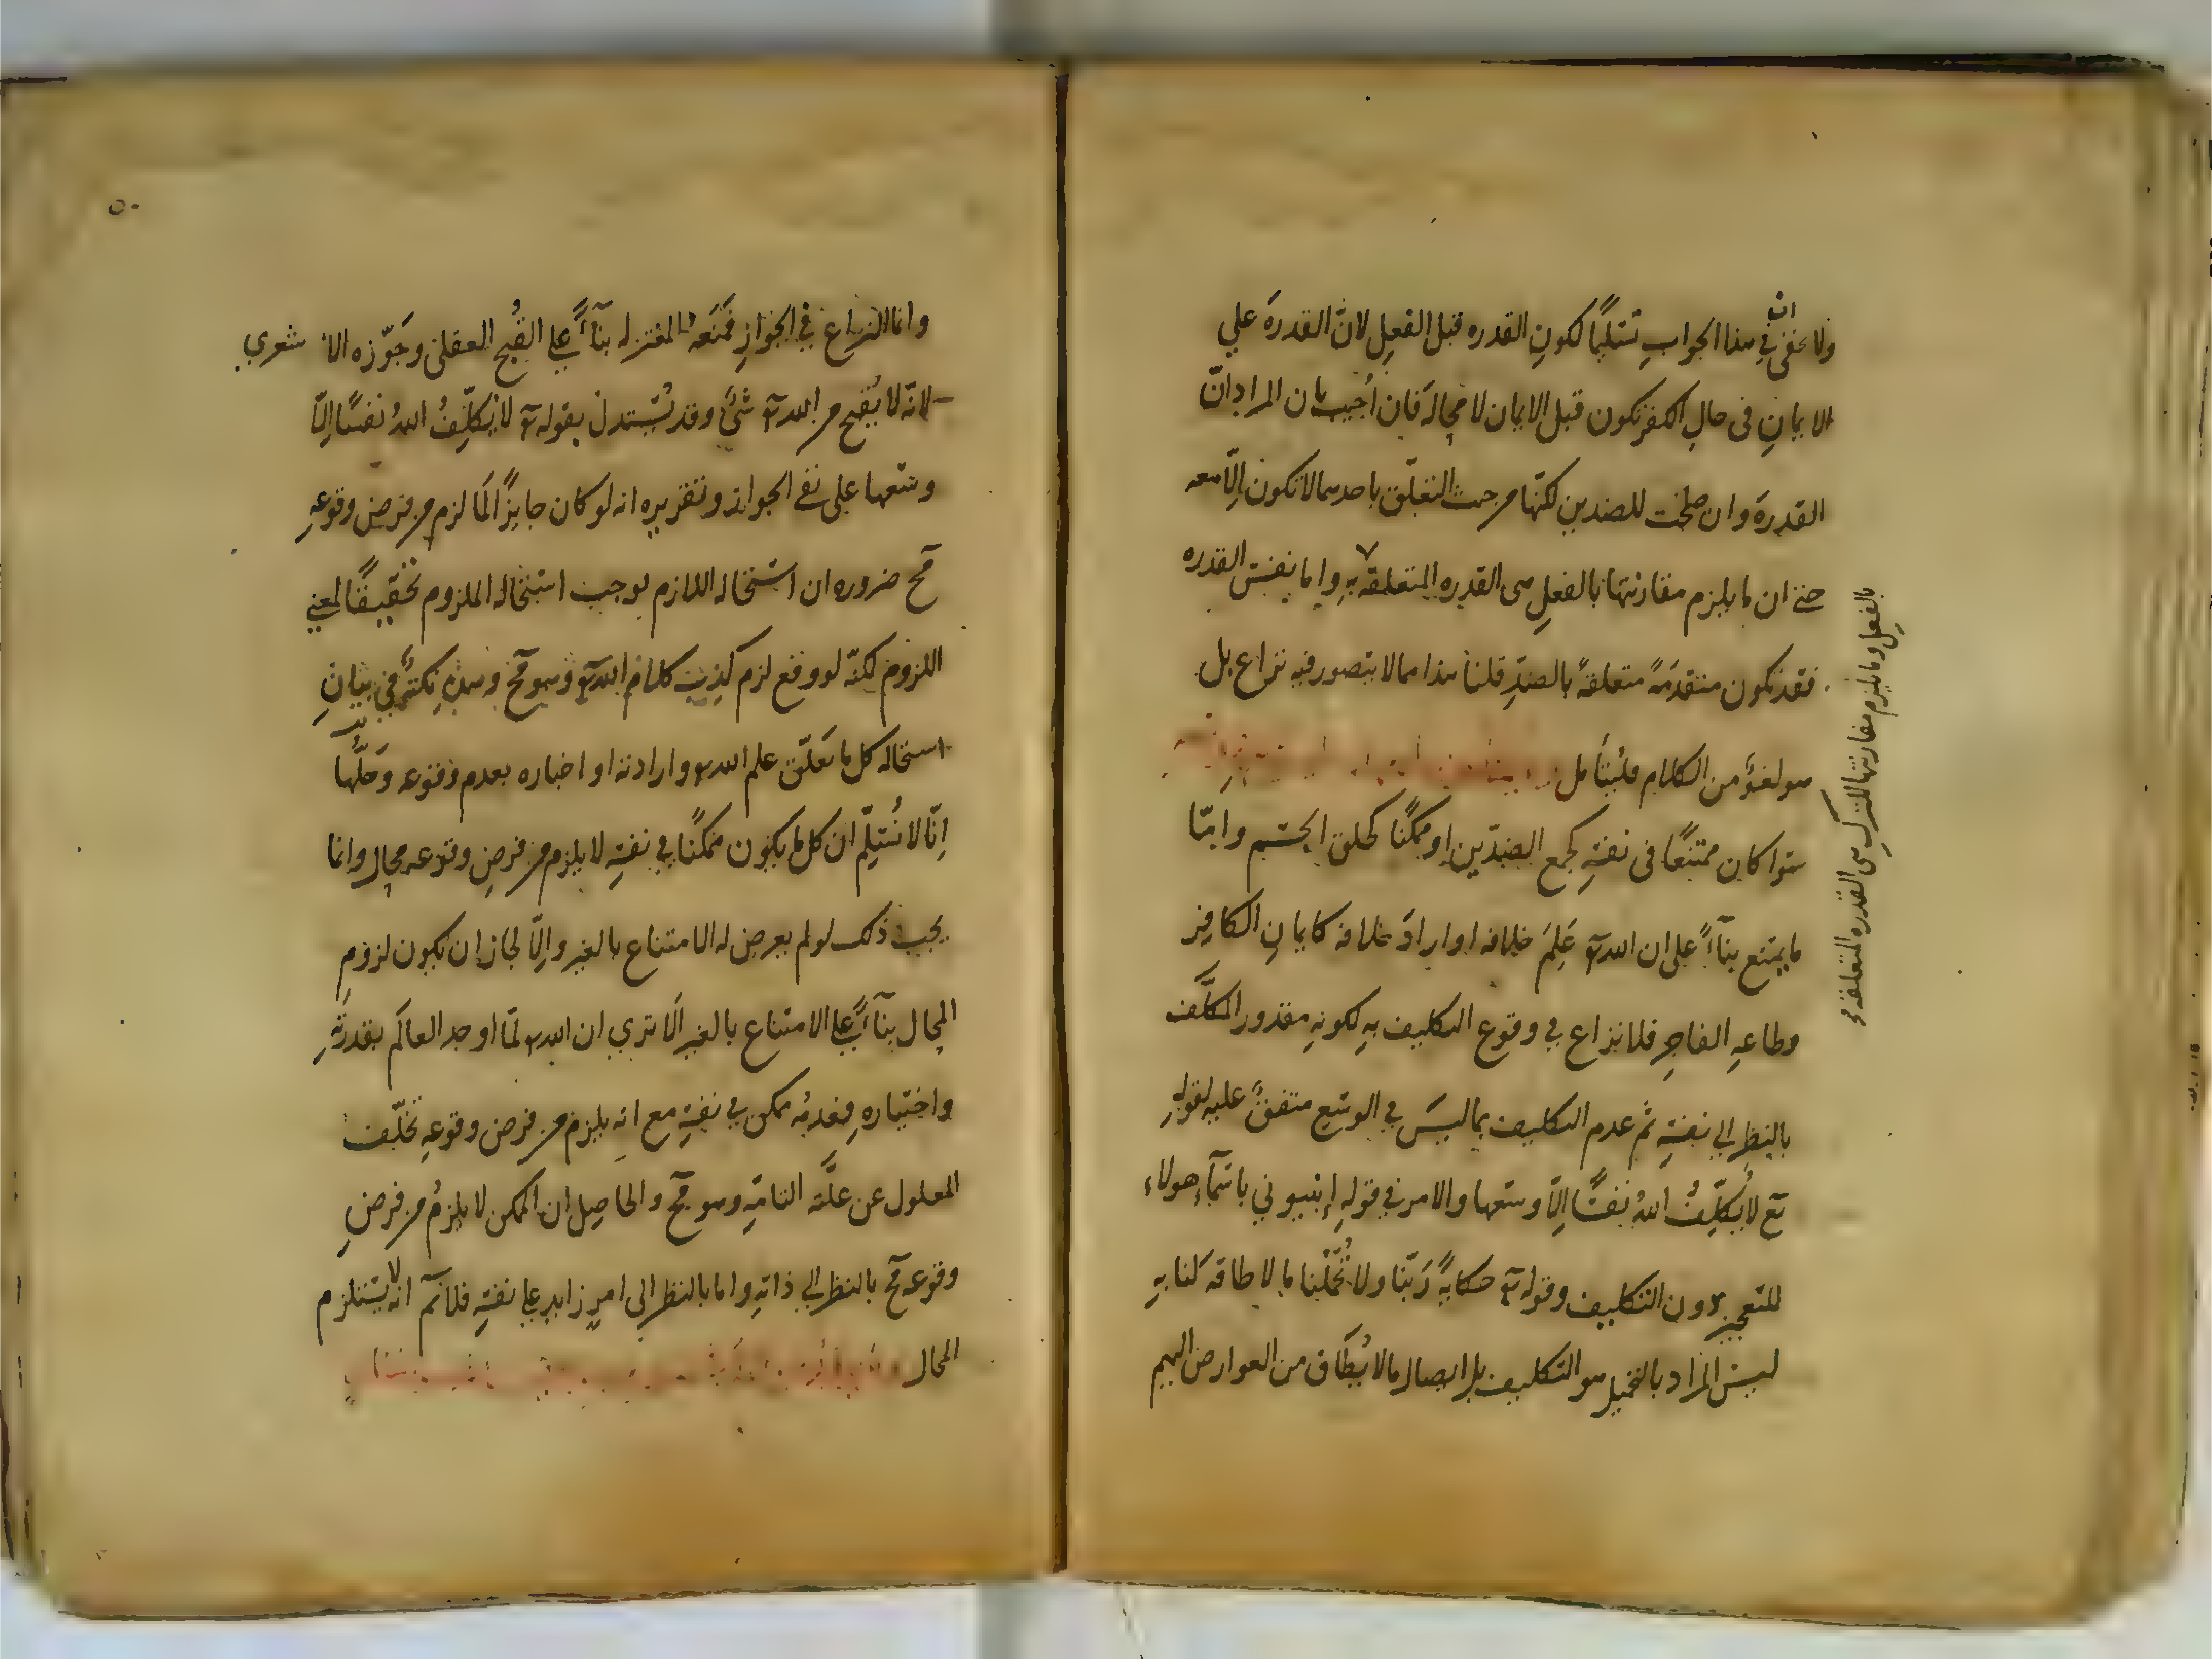 ولا يخفى ان في هذا الجواب تسليمًا لكونِ القدره قبل الفعِل لانّ القدرةَ علي
الايمانِ في حالِ الكفر تكون قبل الايمان لا محِالة فان اُجيب بان المراد انّ
القدرةَ وان صلحت للضدين لكنّها مرحيث التعلّق باحدهما لا تكون اِلّا معه
حتي ان ما يلزم مقارنتها بالفعلِ هي القدره المتعلقه بهِ واما نفس القدره
فقد تكون متقدمَةً متعلقةً بالضدِّ قلنا هذا مما لا يتصور فيه نزاع بل
هو لغوٌ من الكلام فليُتأمل
سَوا كان ممتنعًا في نفسِهِ كجمع الضدّين او ممكنًا كخلق الجسم وامّا
ما يمتنع بنآءً على ان الله تع عَلِمَ خلافه او ارادَ خلافه كايمانِ الكافِر
وطاعهِ الفاجِر فلا نزاع في وقوع التكليف بهِ لكونهِ مقدور المكلَّف
بالنظر الي نفسِهِ ثم عدم التكليف بما ليسَ في الوسع متفقٌ عليه لقولهِ
تع لا يُكلِّفُ اللهُ نفسًا اِلّا وسعها والامر في قولهِ انبيوني باسمآء هولاء
للتعجيز دون التكليف وقوله تع حكايةً رَبّنا ولا تُحَمّلنا ما لا طاقه لنا بهِ
ليسَ المراد بالتحميل هو التكليف بل ايصال ما لا يُطَاق من العوارض اليهم
بالفعِل وما يلزم مقارنتها للترك هي القدره المتعلقه
٥٠
وانما النزاع في الجوازِ فمَنَعَه المعتزله بنآءً علي القُبح العقلي وجَوّزه الاشعري
لانه لا يُقبح مر الله تع شئٌ وقد يُستدل بقوله تع لا يُكلِّفُ اللهُ نفسًا اِلّا
وسعها علي نفي الجواز وتقريره انه لو كان جايزًا لَما لزم مر فرض وقوعهِ
مح ضروره ان استحاله اللازم يوجب استحاله الملزوم تحقيقًا لمعني
اللزوم لكنّه لو وقع لزم كذِب كلام الله تع وهو مح وهذهِ نكتةٌ في بيانِ
استحاله كل ما تعَلّق علم الله تع وارادته او اخباره بعدم وقوعه وحَلّها
اِنّا لا نُسلِّم ان كل ما يكون ممكنًا في نفسهِ لا يلزم مر فرضِ وقوعه محِال وانما
يجب ذلك لو لم يعرض له الامتناع بالغير واِلّا لجاز ان يكون لزوم
المحِال بنآءً علي الامتناع بالغير اَلا تري ان الله تع لمّا اوجد العالَم بقدرتهِ
واختياره فعدمُه ممكن في نفسِهِ مع انه يلزم مر فرض وقوعهِ تخلّف
المعلول عن علّته التامّهِ وهو مح والحاصِل ان الممكن لا يلزمُ مر فرضِ
وقوعه مح بالنظر الي ذاتهِ واما بالنظر الي امرٍ زايد علي نفسهِ فلا نم انه لا يستلزم
المحال